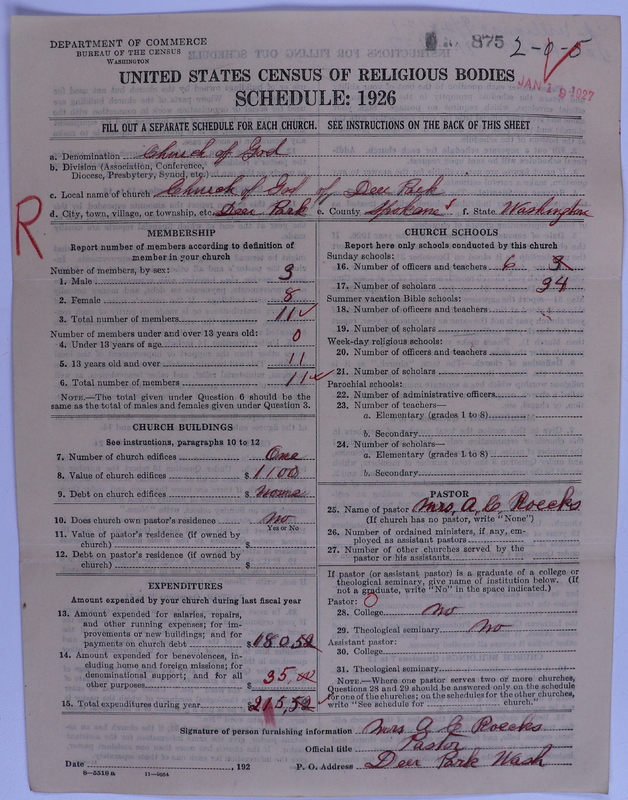 DEPARTMENT OF COMMERCE
BUREAU OF THE CENSUS
WASHINGTON
875 2-0-5
UNITED STATES CENSUS OF RELIGIOUS BODIES
JAN 2 9 1927
SCHEDULE: 1926
FILL OUT A SEPARATE SCHEDULE FOR EACH CHURCH. SEE INSTRUCTIONS ON THE BACK OF THIS SHEET
a. Denomination Church of God
b. Division (Association, Conference, Diocese, Presbytery, Synod, etc.)
c. Local name of church Church of God of Deer Park
d. City, town, village, or township, etc. Deer Park e. County Spokane f. State Washington
R
MEMBERSHIP
Report number of members according to definition of
member in your church
Number of members, by sex:
1. Male 3
2. Female 8
3. Total number of members 11
Number of members under and over 13 years old:
4. Under 13 years of age 0
5. 13 years old and over 11
6. Total number of members 11
NOTE.—The total given under Question 6 should be
same as the total of males and females given under Question 3.
CHURCH BUILDINGS
See instructions, paragraphs 10 to 12
7. Number of church edifices One
8. Value of church edifices $ 1100
9. Debt on church edifices $ None
10. Does church own pastor's residence no
Yes or No
11. Value of pastor's residence (if owned by
church) $
12. Debt on pastor's residence (if owned by
church) $
EXPENDITURES
Amount expended by your church during last fiscal year
13. Amount expended for salaries, repairs,
and other running expenses; for im-
provements or new buildings; and for
payments on church debt $ 180.52
14. Amount expended for benevolences, in-
cluding home and foreign missions; for
denominational support; and for all
other purposes $ 35.00
15. Total expenditures during year $ 215,52
CHURCH SCHOOLS
Report here only schools conducted by this church
Sunday schools:
16. Number of officers and teachers 6 3
17. Number of scholars 34
Summer vacation Bible schools:
18. Number of officers and teachers
19. Number of scholars
Week-day religious schools:
20. Number of officers and teachers
21. Number of scholars
Parochial schools:
22. Number of administrative officers
23. Number of teachers—
a. Elementary (grades 1 to 8)
b. Secondary
24. Number of scholars—
a. Elementary (grades 1 to 8)
b. Secondary
PASTOR
25. Name of pastor Mrs, A C Roecks
(If church has no pastor, write "None")
26. Number of ordained ministers, if any, em-
ployed as assistant pastors
27. Number of other churches served by the
pastor or his assistants
If pastor (or assistant pastor) is a graduate of a college or
theological seminary, give name of institution below. (If
not a graduate, write "No" in the space indicated.)
Pastor: 0
28. College no
29. Theological seminary No
Assistant pastor:
30. College
31. Theological seminary
NOTE.—Where one pastor serves two or more churches,
Questions 28 and 29 should be answered only on the schedule
for one of the churches; on the schedules for the other churches,
write "See schedule for church."
Signature of person furnishing information Mrs A C Roecks
Official title Pastor
Date , 192 P. O. Address Deer Park Wash
8-5518a 11-9554